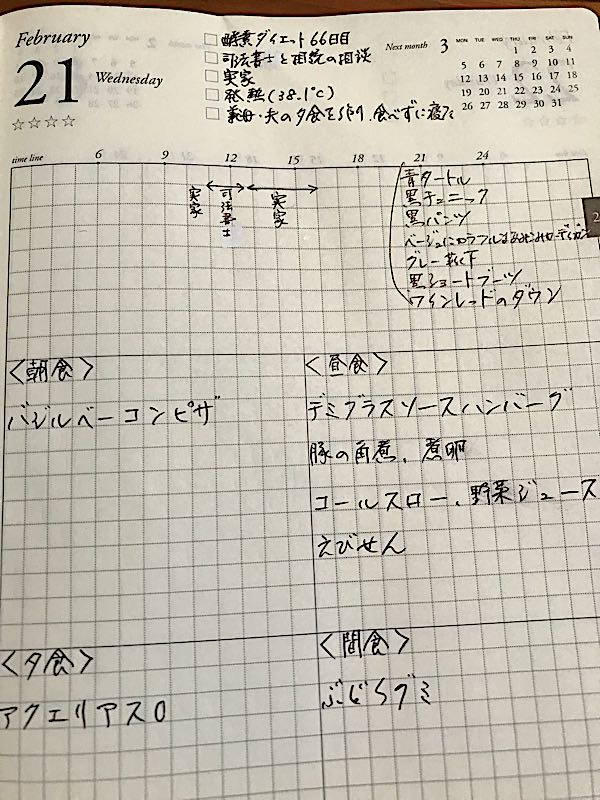 February
21 Wednesday
☆☆☆☆
□ 酵素ダイエット66日目
□ 司法書士と相続の相談
□ 実家
□ 発熱(38.1°C)
□ 義母・夫の夕食を作り、食べずに寝る
Next month 3
MON. TUE. WED. THU. FRI. SAT. SUN.
1 2 3 4
5 6 7 8 9 10 11
12 13 14 15 16 17 18
19 20 21 22 23 24 25
26 27 28 29 30 31
time line 6 9 12 15 18 21 24
実家
司法書士
実家
青タートル
黒チュニック
黒パンツ
ベージュにカラフル
グレー靴下
黒ショートブーツ
ワインレッドのダウン
2
<朝食>
バジルベーコンピザ
<昼食>
デミグラスソースハンバーグ
豚の角煮、煮卵
コールスロー、野菜ジュース
えびせん
<夕食>
アクエリアス0
<間食>
ぶどうグミ